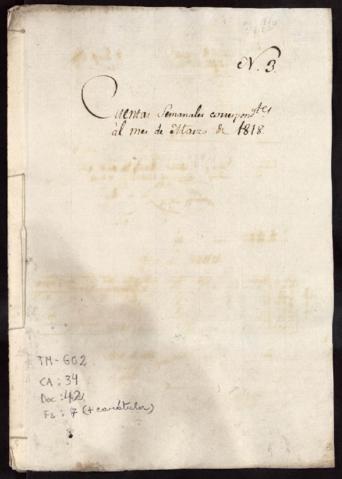 N. 3.
Cuentas Semanales correspondtes
al mes de Marzo de 1818
TM-GG2
CA: 34
Doc: 42
Fs: 7 (+ carátula)